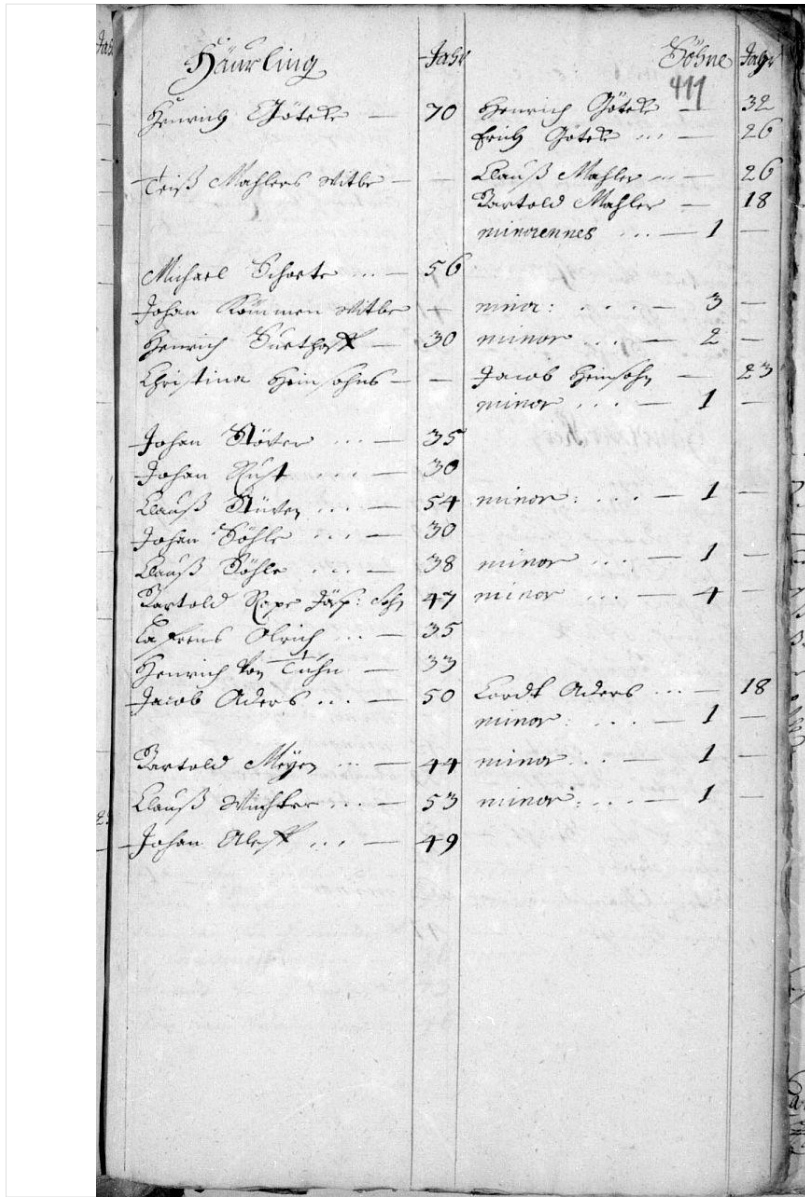 Häurling Jahr Söhne Jahr
417
Henrich Götke — 70 Henrich Götke — 32
Erich Götke ... — 26
Teiß Mahlers Witbe — — Clauß Mahler ... — 26
Bartold Mahler — 18
minorennes ... — 1 —
Michael ... — 56
Johan Witbe minor: .... — 3 —
Henrich — 30 minor ... — 2 —
Christina Heinsohns — — Jacob Heinsohn — 23
minor .... — 1 —
Johan Stöver ... — 35
Johan Rust .... — 30
Clauß Stüven ... — 54 minor: .... — 1 —
Johan Söhle ... — 30
Clauß Söhle .... — 38 minor ... — 1 —
Bartold Rope — 47 minor ... — 4 —
Olrich ... — 35
Henrich von — 33
Jacob Aders ... — 50 Cordt Aders ... — 18
minor: .... — 1 —
Bartold Meyer ... — 44 minor .... — 1 —
Clauß ... — 53 minor: ... — 1 —
Johan ... — 49